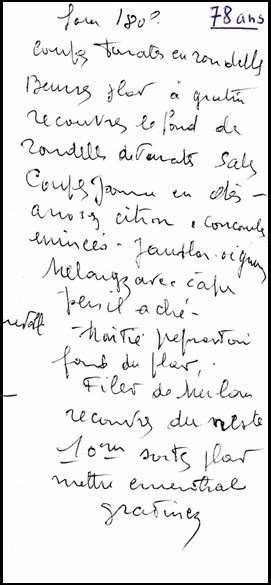 four 180° 78 ans
Coupez Tomates en rondelles
Beurrez plat à gratin
recouvrez le fond de
rondelles de Tomates Salez
Coupez Jambon en dés -
arrosez citron concombre
émincés - oignons
Mélangez avec câpres
persil haché -
Moitié préparation
fond du plat,
Filet de Merlan
recouvrez du reste
10 mn sortez plat
mettre emmenthal
gratinez